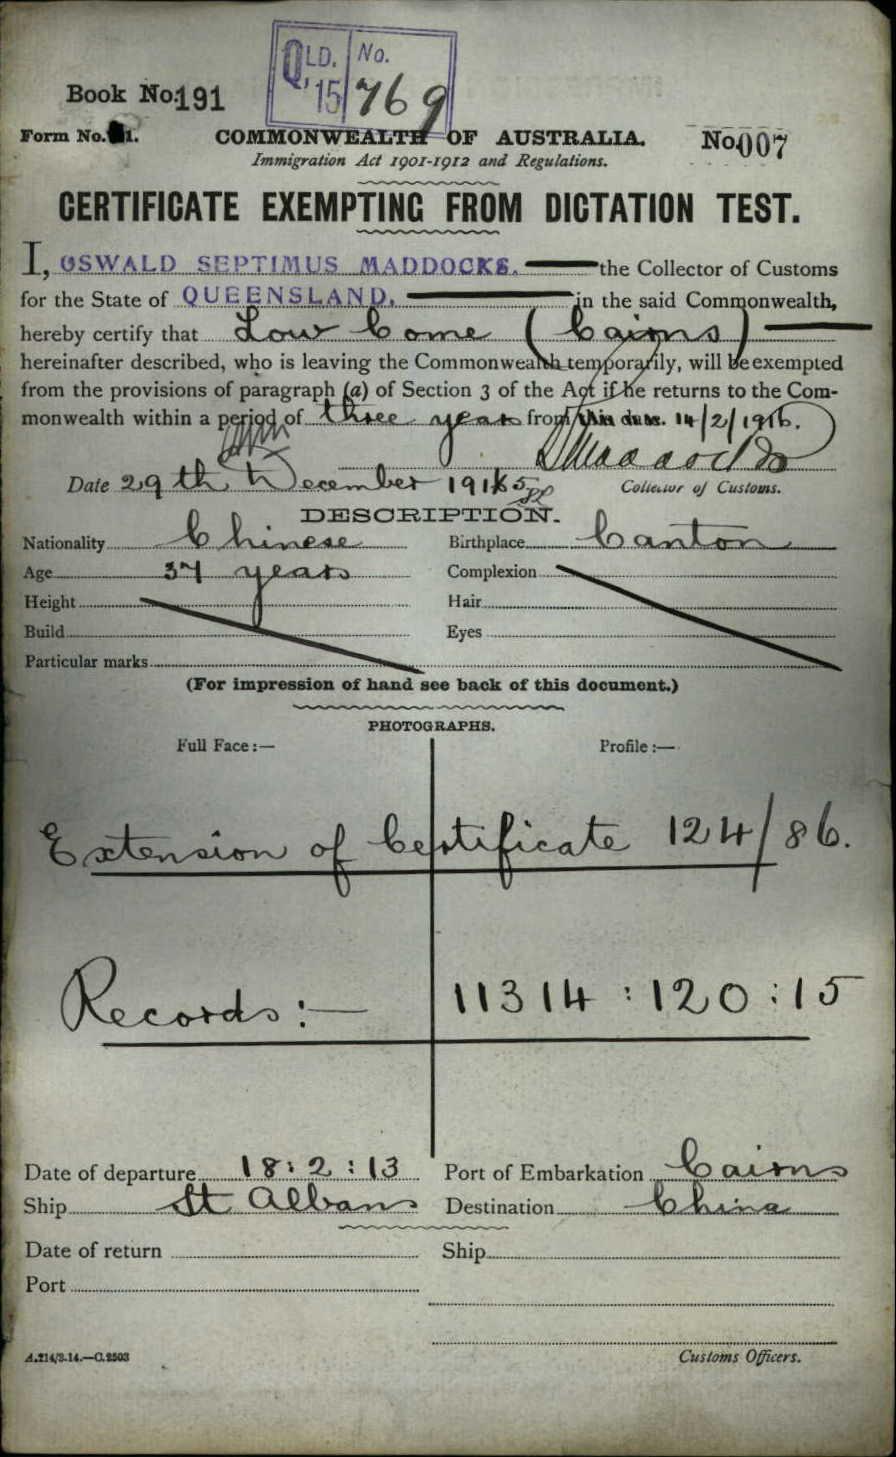 QLD. No.
'15 769
Book No. 191
Form No. 21.
COMMONWEALTH OF AUSTRALIA.
No. 007
Immigration Act 1901-1912 and Regulations.
CERTIFICATE EXEMPTING FROM DICTATION TEST.
I, OSWALD SEPTIMUS MADDOCKS. the Collector of Customs
for the State of QUEENSLAND. in the said Commonwealth,
hereby certify that Low Come (Cairns)
hereinafter described, who is leaving the Commonwealth temporarily, will be exempted
from the provisions of paragraph (a) of Section 3 of the Act if he returns to the Com-
monwealth within a period of three years from this date. 14/2/1916.
Date 29th December 1915 Collector of Customs.
DESCRIPTION.
Nationality Chinese Birthplace Canton
Age 37 years Complexion
Height Hair
Build Eyes
Particular marks
(For impression of hand see back of this document.)
PHOTOGRAPHS.
Full Face:— Profile:—
Extension of Certificate 124/86.
Records:— 11314:120:15
Date of departure 18:2:13 Port of Embarkation Cairns
Ship St Albans Destination China
Date of return Ship
Port
A.214/3.14.—C.2503 Customs Officers.